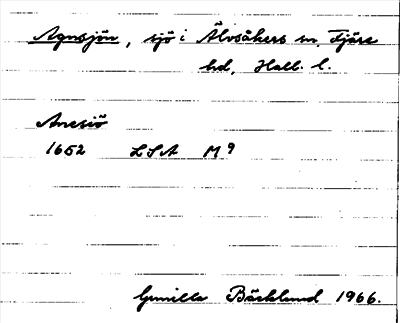 Agnsjön, sjö i Älvsåkers sn, Fjäre
hd, Hall. l.
Anesiö
1652 LSA M 9
Gunilla Bäcklund 1966.